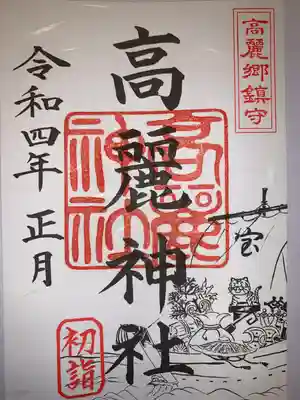 高麗郷鎮守
高麗神社
高麗神社
令和四年 正月
初詣
宝